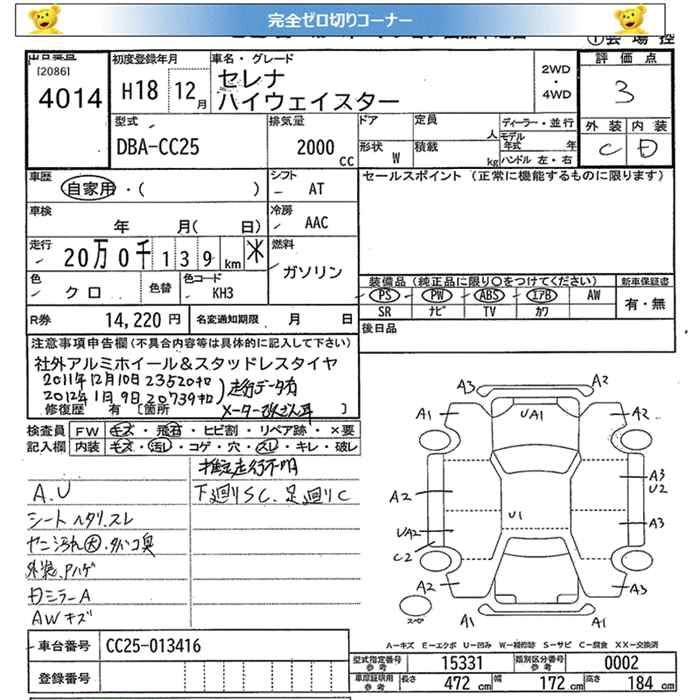 完全ゼロ切りコーナー
[2086]
4014
初度登録年月
H18 12月
車名・グレード
セレナ
ハイウェイスター
2WD
・
4WD
評価点
3
外装 内装
C D
型式
DBA-CC25
排気量
2000 cc
ドア
形状 W
定員 人
積載 kg
ディーラー・並行
モデル
年式 年
ハンドル 左・右
車歴
自家用・( )
シフト
AT
セールスポイント (正常に機能するものに限ります)
車検
年 月( 日)
冷房
AAC
走行
20万0千139km ※
燃料
ガソリン
色
クロ
色替
色コード
KH3
装備品 (純正品に限り○をつけてください)
PS PW ABS エアB AW
SR ナビ TV カワ
新車保証書
有・無
R券
14,220 円
名変通知期限 月 日
後日品
注意事項申告欄 (不具合内容等は具体的に記入して下さい)
社外アルミホイール&スタッドレスタイヤ
2011年12月10日 23520キロ
2012年1月9日 20739キロ
走行データ有
メーター改ざん車
修復歴 有 [箇所 ]
検査員
記入欄
FW キズ・飛石・ヒビ割・リペア跡・×要
内装 キズ・汚レ・コゲ・穴・スレ・キレ・破レ
推定走行不明
A.U
下廻りSC.足廻りC
シートヘタリ.スレ
ヤニ汚れ大.タバコ臭
外装.Pハゲ
ミラーA
AWキズ
車台番号 CC25-013416
登録番号
A3 A2
A1 UA1 A2
A3
U2
A2
U1
A3
UA2
C2
A2 A3
スペア
A1 A1
A－キズ E－エクボ U－凹み W－補修跡 S－サビ C－腐食 XX－交換済
型式指定番号
参考
15331
類別区分番号
参考
0002
車庫証明用
参考
長さ 472 cm 幅 172 cm 高さ 184 cm